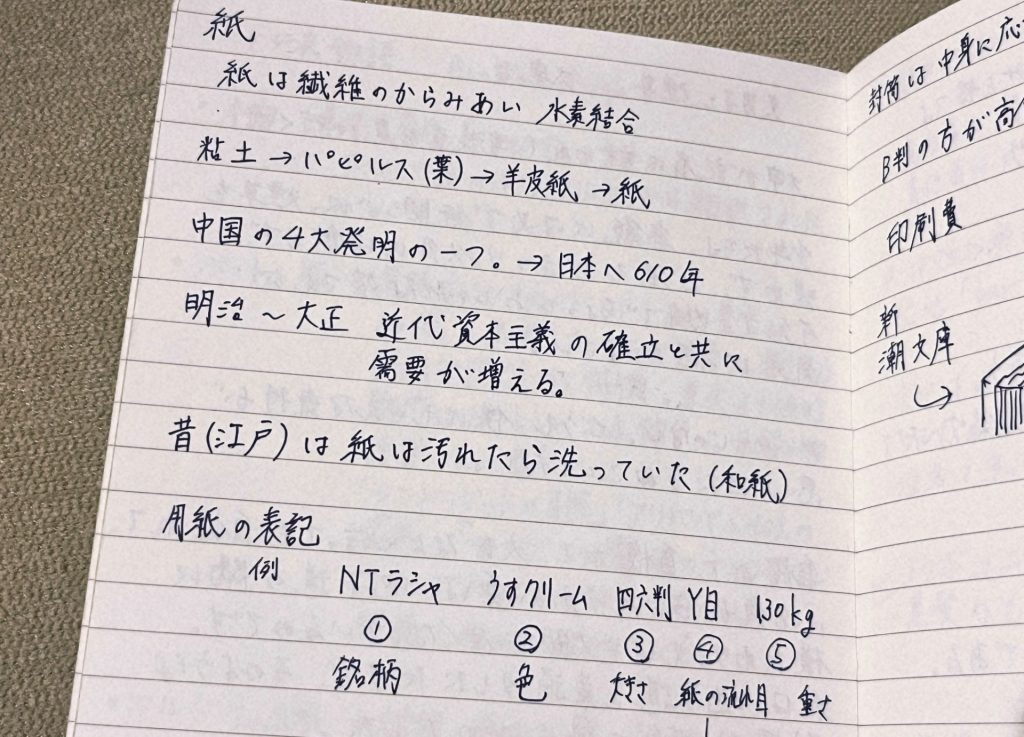 紙
紙は繊維のからみあい 水素結合
粘土→パピルス(葉)→羊皮紙→紙
中国の4大発明の一つ。→日本へ610年
明治〜大正 近代資本主義の確立と共に
需要が増える。
昔(江戸)は紙は汚れたら洗っていた(和紙)
用紙の表記
例 NTラシャ うすクリーム 四六判 Y目 130kg
① ② ③ ④ ⑤
銘柄 色 大きさ 紙の流れ目 重さ
封筒は中身に応
B判の方が高
印刷費
新
潮文庫